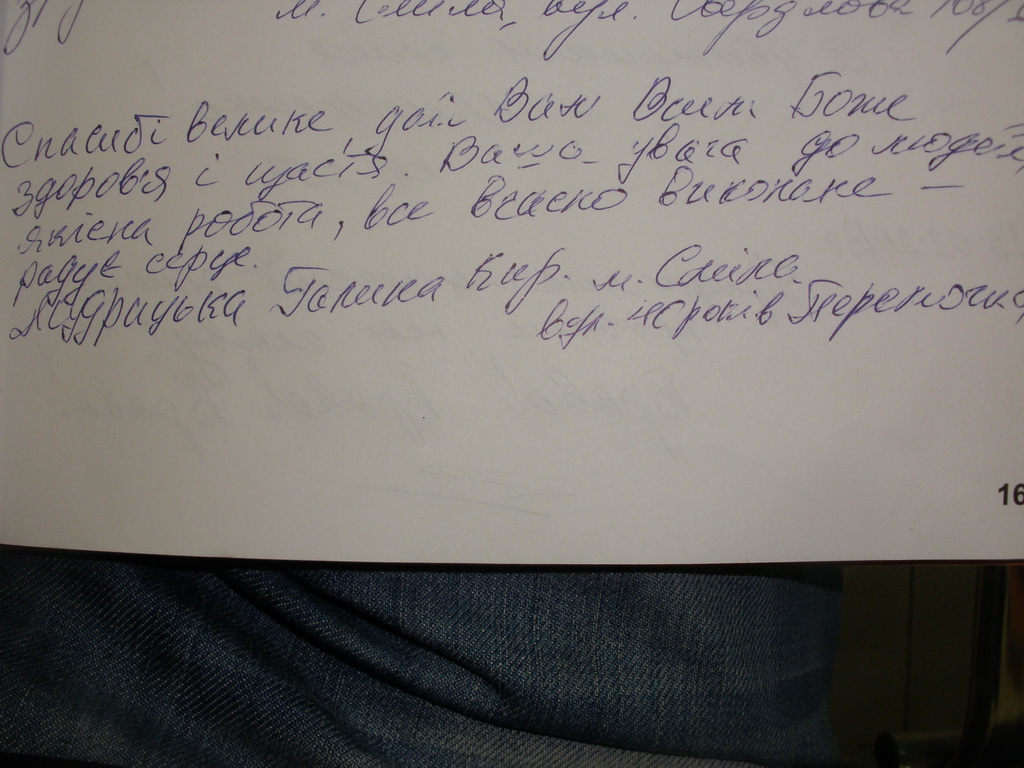 м. Сміла, вул. Свердлова 108/
Спасибі велике, дай Вам Всим Боже
здоров'я і щастя. Ваша увага до людей,
якісна робота, все вчасно виконане –
радує серце.
Мудрицька Галина Кир. м. Сміла.
вул. 40 років Перемоги,
16